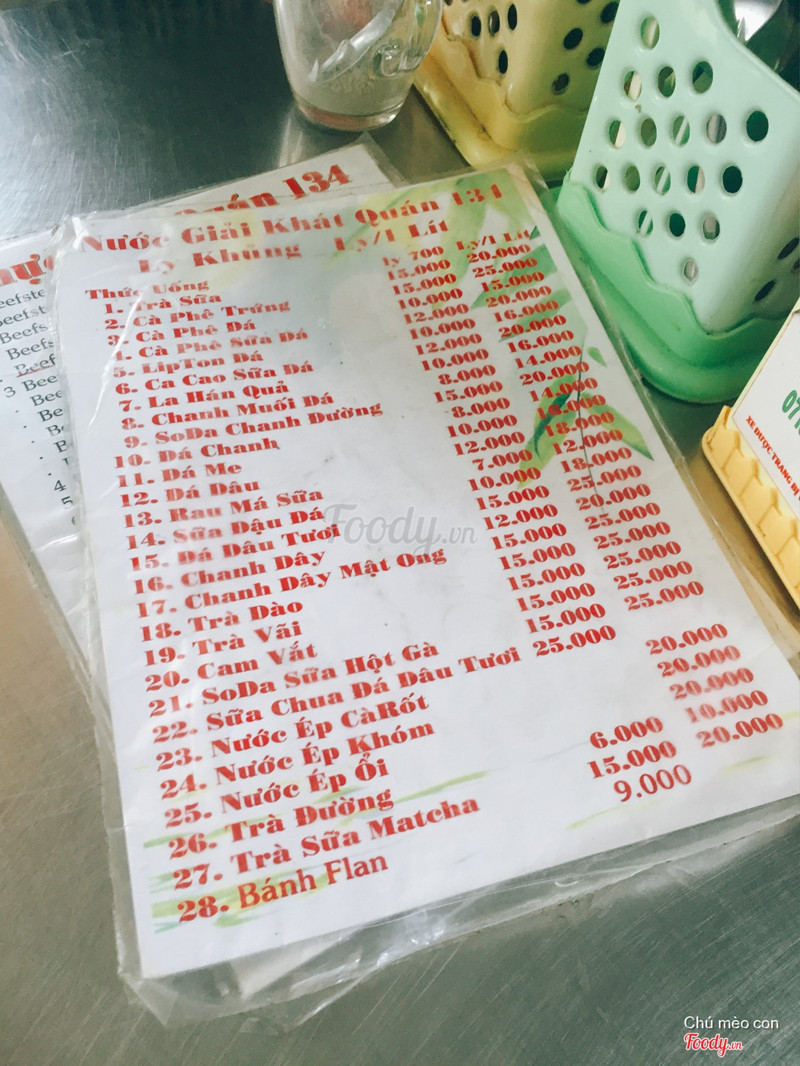 Quán 134
Nước Giải Khát Quán 134
Ly Khủng Ly/1 Lít
Thức Uống ly 700 Ly/1 Lít
1. Trà Sữa 15.000 20.000
2. Cà Phê Trứng 15.000 25.000
3. Cà Phê Đá 10.000 15.000
4. Cà Phê Sữa Đá 12.000 20.000
5. LipTon Đá 10.000 16.000
6. Ca Cao Sữa Đá 12.000 20.000
7. La Hán Quả 10.000 16.000
8. Chanh Muối Đá 8.000 14.000
9. SoDa Chanh Đường 15.000 20.000
10. Đá Chanh 8.000 14.000
11. Đá Me 10.000 16.000
12. Đá Dâu 12.000 18.000
13. Rau Má Sữa 7.000 12.000
14. Sữa Dậu Đá 10.000 18.000
15. Đá Dâu Tươi 15.000 25.000
16. Chanh Dây 12.000 20.000
17. Chanh Dây Mật Ong 15.000 25.000
18. Trà Dào 15.000 25.000
19. Trà Vãi 15.000 25.000
20. Cam Vắt 15.000 25.000
21. SoDa Sữa Hột Gà 15.000 25.000
22. Sữa Chua Đá Dâu Tươi 25.000
23. Nước Ép CàRốt 20.000
24. Nước Ép Khóm 20.000
25. Nước Ép Ổi 20.000
26. Trà Đường 6.000 10.000
27. Trà Sữa Matcha 15.000 20.000
28. Bánh Flan 9.000
Beefste
Beefst
Beefs
Beef
3 Bee
Bee
Be
Be
4
5
071
XE ĐƯỢC TRANG BỊ
Foody.vn
Chú mèo con
Foody.vn